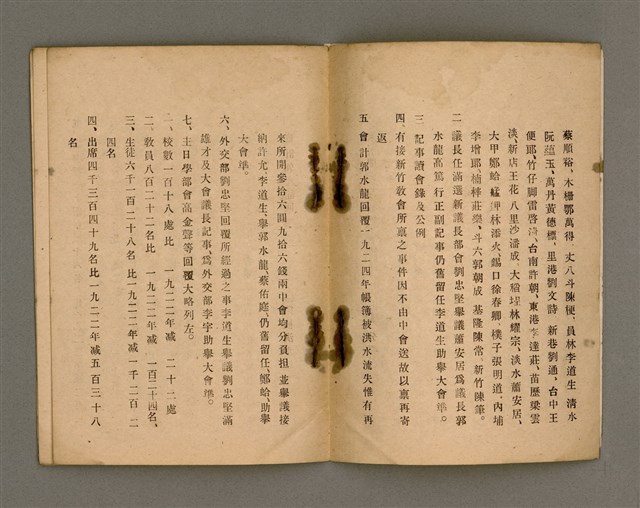 蔡順裕、木柵鄂萬得、丈八斗陳梗、員林李道生 清水
阮蘊玉、萬丹黃德標、里港劉文詩 新巷劉通、台中王
便耶、竹仔脚雷啓濤、台南許朝、東港李達莊、苗歷梁雲
淡、新店王花 八里沙潘成、大稻埕林耀宗、淡水蕭安居、
大甲鄭蛤 艋舺林添火、錫口徐春卿、樸子張明道、內埔
李增耶 楠梓莊樂、斗六郭朝成 基隆陳常、新竹陳筆。
二 議長任滿選新議長部會劉忠堅舉議蕭安居爲議長郭
水龍高篤行正副記事仍舊留任李道生助舉大會準。
三 記事讀會錄及公例
四、有接新竹教會所稟之事件因不由中會送故以稟再寄
返
五 會計郭水龍回覆一九二四年帳簿被洪水流失惟有再
來所開參拾六圓九拾六錢兩中會均分負担 並舉議接
納許允 李道生、舉郭水龍、蔡佑庭、仍舊留任、鄭蛤、助舉
大會準。
六、外交部劉忠堅回覆所經過之事李道生舉議劉忠堅滿
雄才及大會議長記事爲外交部李字助舉大會準。
七、主日學部會高金聲等回覆大略列左。
一、校數一百十八處比 一九二二年减 二十二處
二、教員八百二十二名比 一九二二年减 一百二十四名、
三、生徒六千一百二十八名 比一九二二年减一千二百二十
四名
四、出席四千三百四十九名比一九二二年减五百三十八
名